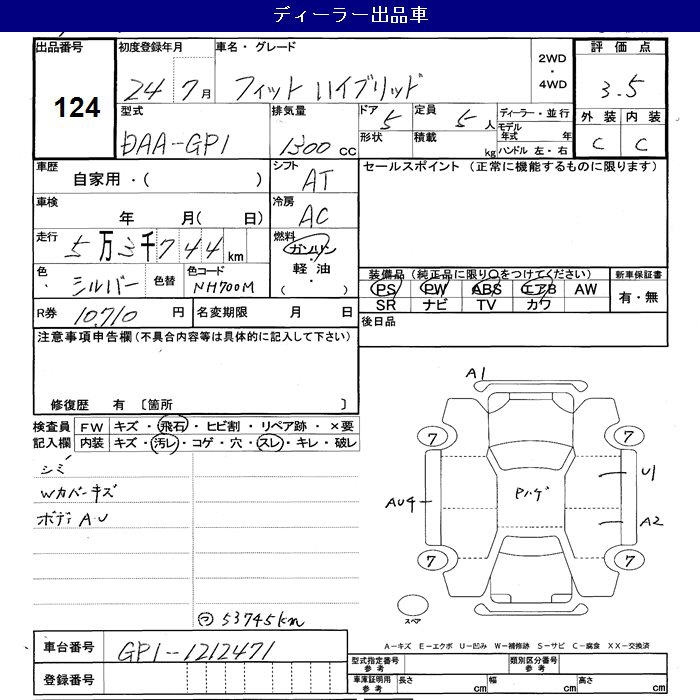 ディーラー出品車
出品番号 初度登録年月 車名・グレード 評価点
124
24 7月 フィット ハイブリッド 2WD ・ 4WD 3.5
型式 排気量 ドア 定員 ディーラー・並行 外装 内装
DAA-GP1 1300cc 5 5人 モデル年式 年 C C
形状 積載 kg ハンドル 左・右
車歴 自家用・( ) シフト AT セールスポイント (正常に機能するものに限ります)
車検 年 月( 日) 冷房 AC
走行 5万3千744km 燃料 ガソリン・軽油・( )
色 シルバー 色替 色コード NH700M
装備品 (純正品に限り○をつけてください) 新車保証書
PS PW ABS エアB AW 有・無
SR ナビ TV カワ
R券 10,710円 名変期限 月 日 後日品
注意事項申告欄 (不具合内容等は具体的に記入して下さい)
修復歴 有 〔箇所 〕
検査員記入欄 FW キズ・飛石・ヒビ割・リペア跡・×要
内装 キズ・汚レ・コゲ・穴・スレ・キレ・破レ
シミ
Wカバーキズ
ボディA.U
A1
7 7
U1
Pハゲ
AU4
A2
7 7
スペア
メ 53745km
A-キズ E-エクボ U-凹み W-補修跡 S-サビ C-腐食 XX-交換済
車台番号 GP1-1212471
登録番号
型式指定番号 参考 類別区分番号 参考
車庫証明用 参考 長さ cm 幅 cm 高さ cm